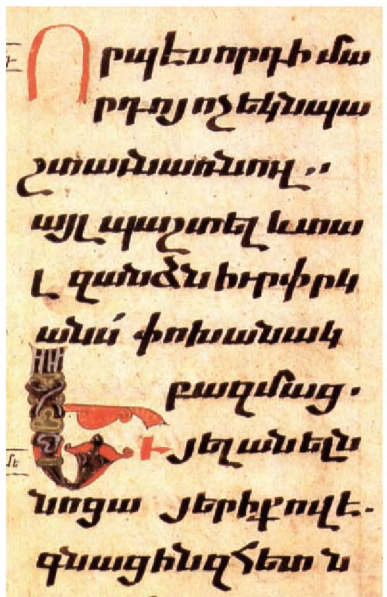 Որպէս որդի մա
րդոյ ոչ եկն պա
շտաւն առնուլ .,
այլ պաշտել և տա
լ զանձն իւր փրկ
անս փոխանակ
բազմաց.
Եւ յելանելն
նոցա յերիքովէ.
գնաց ինզհետ ն